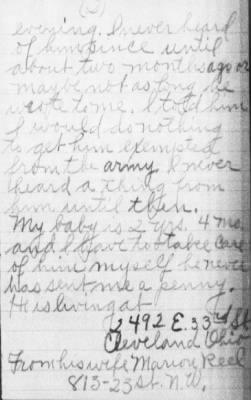 (2)
evening. I never heard
of him since until
about two months ago or
maybe not as long he
wrote to me. I told him
I would do nothing
to get him exempted
from the army I never
heard a thing from
him until then.
My baby is 2 yrs. 4 mo.
and I have to take care
of him myself he never
has sent me a penny.
He is living at
2492 E. 33rd St
Cleveland Ohio
From his wife Marion Reel
813-23 St. N.W.